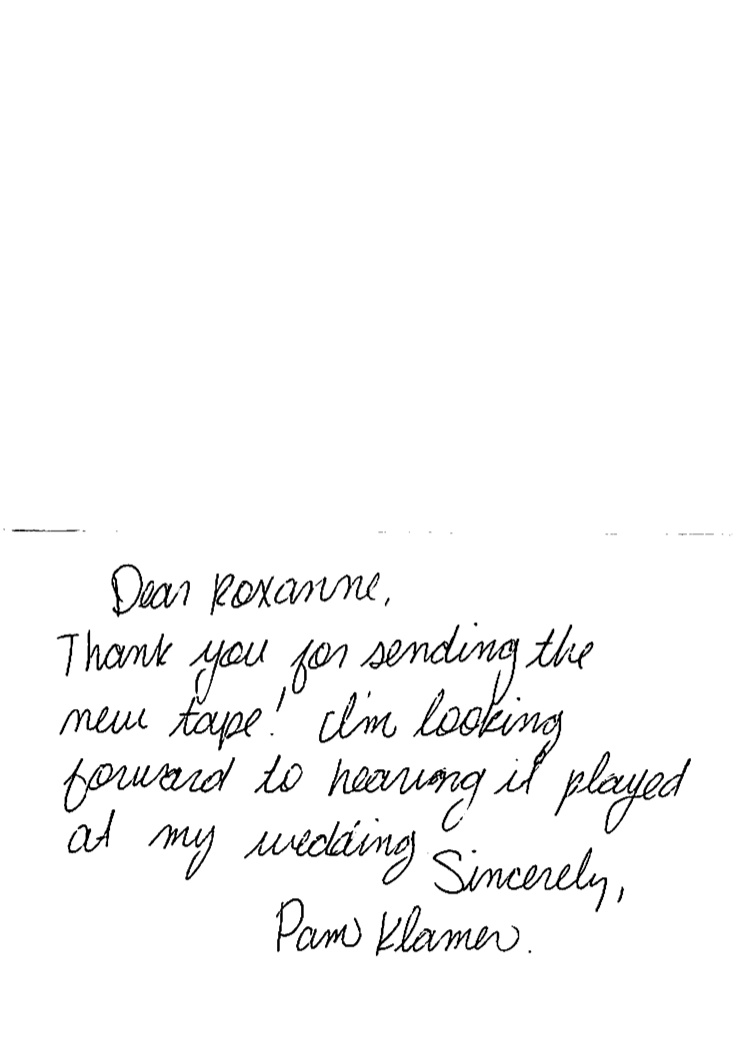 Dear Roxanne,
Thank you for sending the
new tape! I'm looking
forward to hearing it played
at my wedding
Sincerely,
Pam Klamer.